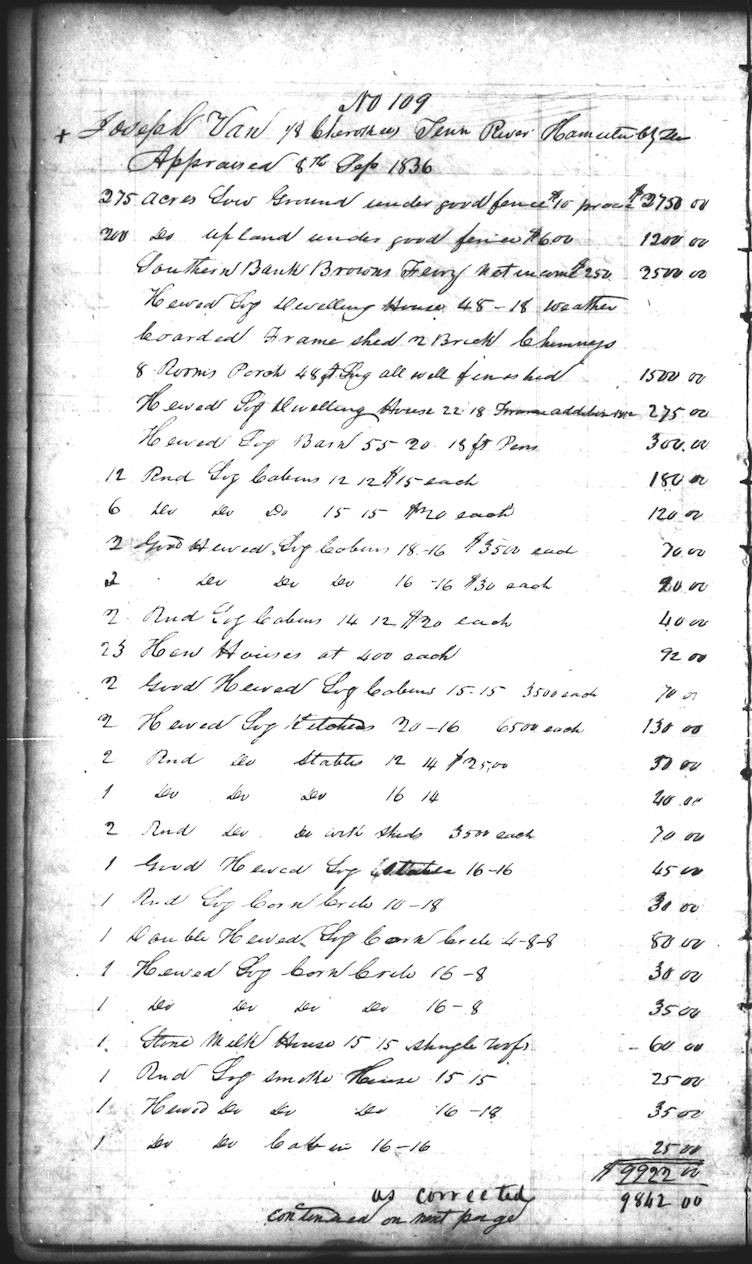 No 109
+ Joseph Van ½ Cherokees Tenn River Hamilton Cty Ten
Appraised 8th Sep 1836
275 Acres Low Ground under good fence $10 pr acre $2750 00
200 Do upland under good fence $600 1200 00
Southern Bank Browns Ferry Net income $250 2500 00
Hewed Log Dwelling House 48-18 weather
boarded Frame shed 2 Brick Chimneys
8 Rooms Porch 48 ft Lng all well finished 1500 00
Hewed Log Dwelling House 22 18 Frame addition 275 00
Hewed Log Barn 55 20 18 ft Pens 300.00
12 Rnd Log Cabins 12 12 $15 each 180 00
6 Do Do Do 15 15 $20 each 120 00
2 Good Hewed Log Cabins 18-16 $3500 each 70 00
2 Do Do Do 16-16 $30 each 20 00
2 Rnd Log Cabins 14 12 $20 each 40 00
23 Hen Houses at 400 each 92 00
2 Good Hewed Log Cabins 15-15 3500 each 70 00
2 Hewed Log Kitchens 20-16 6500 each 130 00
2 Rnd Do Stables 12 14 $25,00 50 00
1 Do Do Do 16 14 20 00
2 Rnd Do Do with sheds 3500 each 70 00
1 Good Hewed Log 16-16 45 00
1 Rnd Log Corn Crib 10-18 30 00
1 Double Hewed Log Corn Crib 4-8-8 80 00
1 Hewed Log Corn Crib 16-8 30 00
1 Do Do Do Do 16-8 35 00
1. Stone Milk House 15 15 shingle roofs 60 00
1 Rnd Log smoke House 15 15 25 00
1 Hewed Do Do Do 16-18 35 00
1 Do Do Cabin 16-16 25 00
$9922 00
as corrected 9842 00
continued on next page